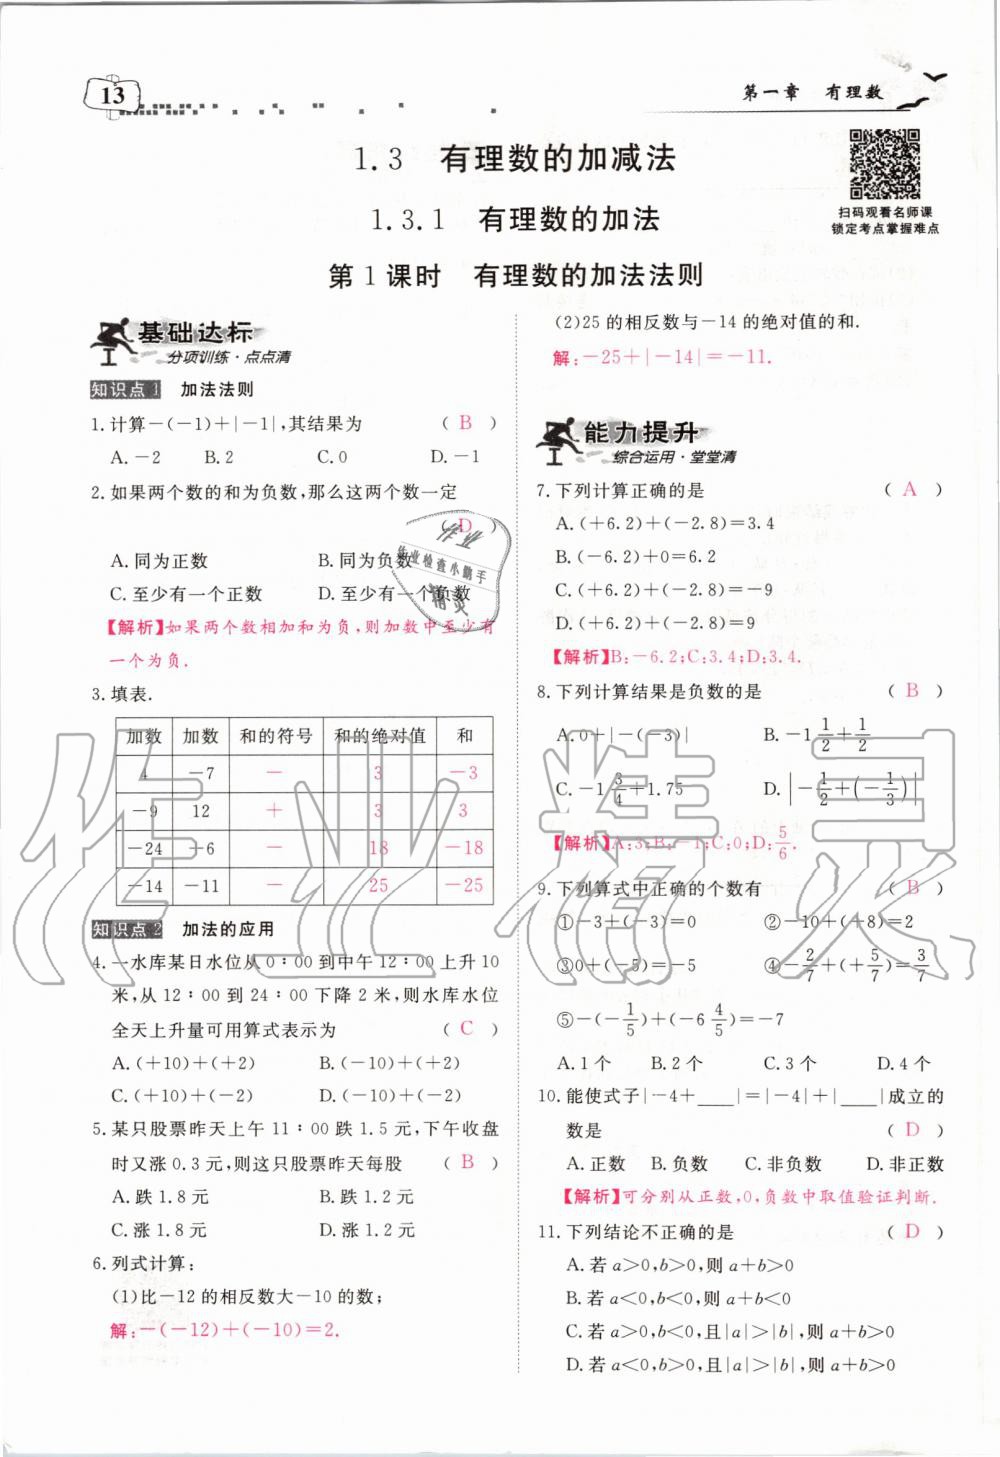 13
第一章 有理数
1.3 有理数的加减法
1.3.1 有理数的加法
第1课时 有理数的加法法则
扫码观看名师课
锁定考点掌握难点
基础达标
分项训练·点点清
知识点1 加法法则
1.计算-(-1)+|-1|,其结果为 ( B )
A.-2 B.2 C.0 D.-1
2.如果两个数的和为负数,那么这两个数一定
( D )
A.同为正数 B.同为负数
C.至少有一个正数 D.至少有一个负数
【解析】如果两个数相加和为负,则加数中至少有
一个为负.
3.填表.
加数 加数 和的符号 和的绝对值 和
4 -7 - 3 -3
-9 12 + 3 3
-24 +6 - 18 -18
-14 -11 - 25 -25
知识点2 加法的应用
4.一水库某日水位从0∶00到中午12∶00上升10
米,从12∶00到24∶00下降2米,则水库水位
全天上升量可用算式表示为 ( C )
A.(+10)+(+2) B.(-10)+(+2)
C.(+10)+(-2) D.(-10)+(-2)
5.某只股票昨天上午11∶00跌1.5元,下午收盘
时又涨0.3元,则这只股票昨天每股 ( B )
A.跌1.8元 B.跌1.2元
C.涨1.8元 D.涨1.2元
6.列式计算:
(1)比-12的相反数大-10的数;
解:-(-12)+(-10)=2.
(2)25的相反数与-14的绝对值的和.
解:-25+|-14|=-11.
能力提升
综合运用·堂堂清
7.下列计算正确的是 ( A )
A.(+6.2)+(-2.8)=3.4
B.(-6.2)+0=6.2
C.(+6.2)+(-2.8)=-9
D.(+6.2)+(-2.8)=9
【解析】B:-6.2;C:3.4;D:3.4.
8.下列计算结果是负数的是 ( B )
A.0+|-(-3)| B.-1 1/2+1/2
C.-1 3/4+1.75 D.|-1/2+(-1/3)|
【解析】A:3;B:-1;C:0;D:5/6.
9.下列算式中正确的个数有 ( B )
①-3+(-3)=0 ②-10+(+8)=2
③0+(-5)=-5 ④-2/7+(+5/7)=3/7
⑤-(-1/5)+(-6 4/5)=-7
A.1个 B.2个 C.3个 D.4个
10.能使式子|-4+____|=|-4|+|____|成立的
数是 ( D )
A.正数 B.负数 C.非负数 D.非正数
【解析】可分别从正数,0,负数中取值验证判断.
11.下列结论不正确的是 ( D )
A.若a>0,b>0,则a+b>0
B.若a<0,b<0,则a+b<0
C.若a>0,b<0,且|a|>|b|,则a+b>0
D.若a<0,b>0,且|a|>|b|,则a+b>0
作业精灵
作业
作业检查小鹅手
精灵